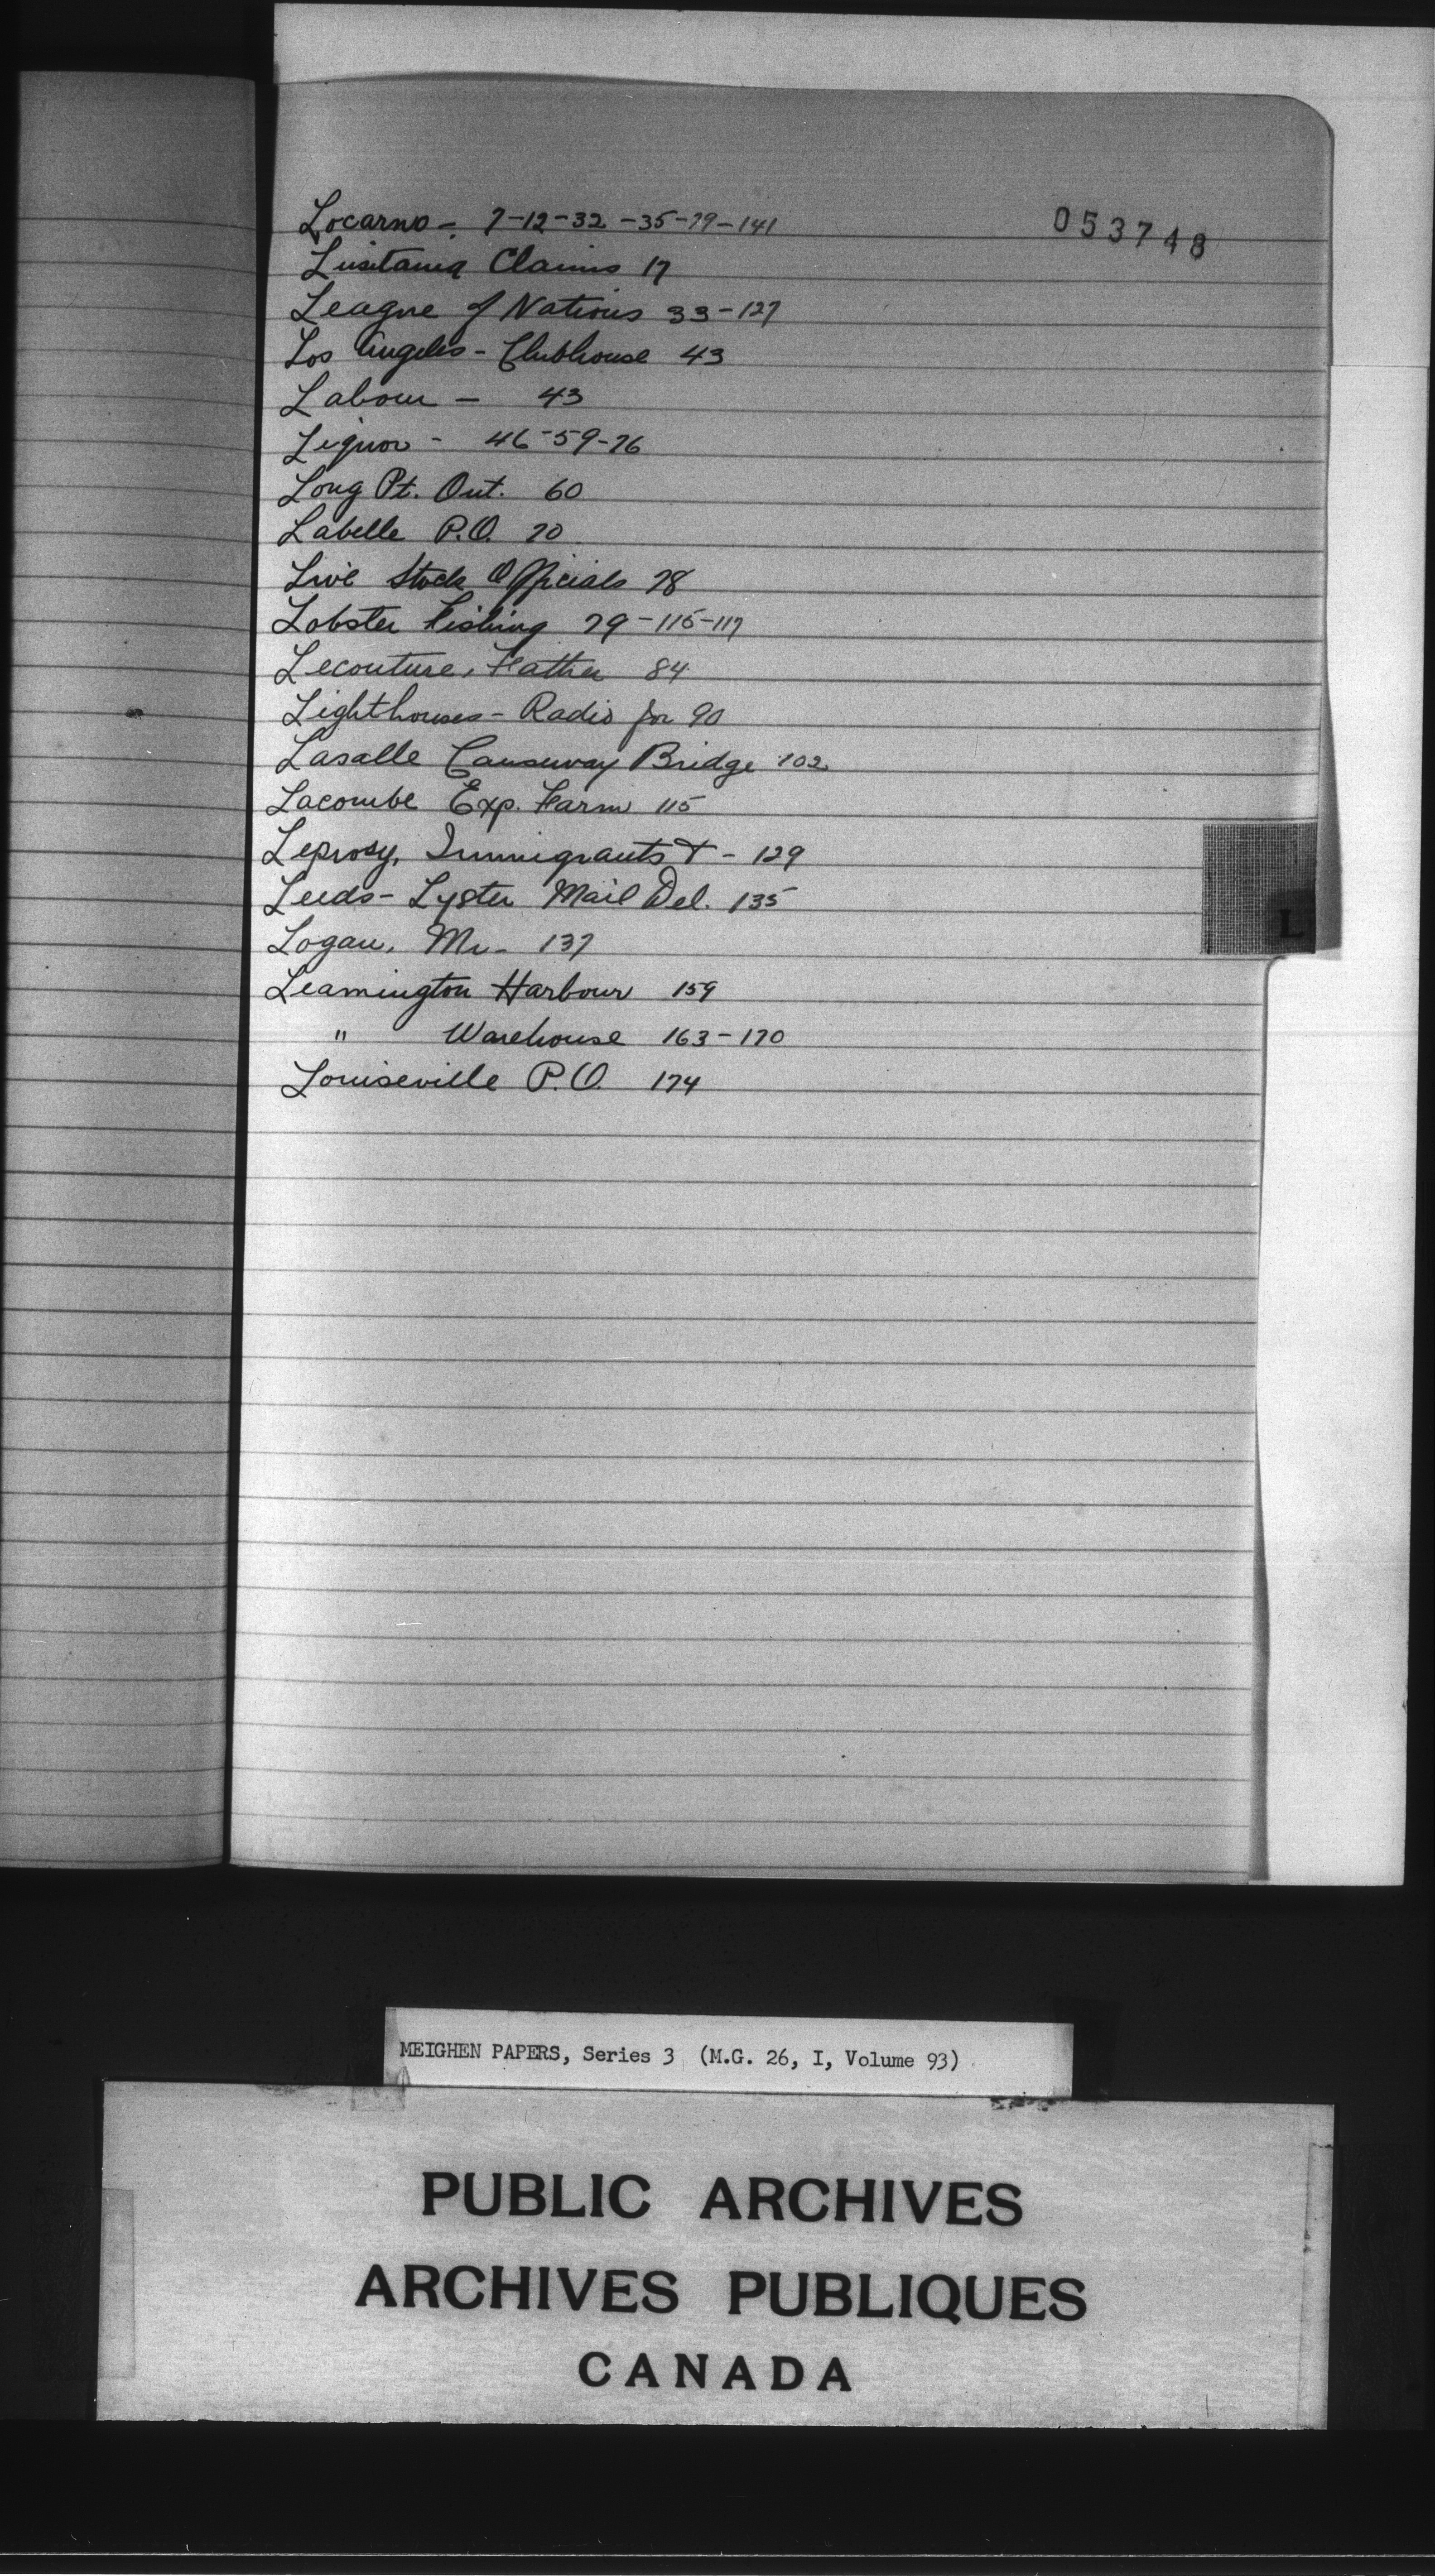 053748
Locarno - 7-12-32-35-79-141
Lusitania Claims 17
League of Nations 33-127
Los Angeles - Clubhouse 43
Labour - 43
Liquor - 46-59-76
Long Pt. Ont. 60
Labelle P.O. 70
Live Stock Officials 78
Lobster Fishing 79-115-117
Lecouture, Father 84
Lighthouses - Radio for 90
Lasalle Causeway Bridge 102
Lacombe Exp. Farm 115
Leprosy, Immigrants & - 129
Leeds - Lyster Mail Del. 135
L
Logan, Mr - 137
Leamington Harbour 159
" Warehouse 163-170
Louiseville P.O. 174
MEIGHEN PAPERS, Series 3 (M.G. 26, I, Volume 93)
PUBLIC ARCHIVES
ARCHIVES PUBLIQUES
CANADA